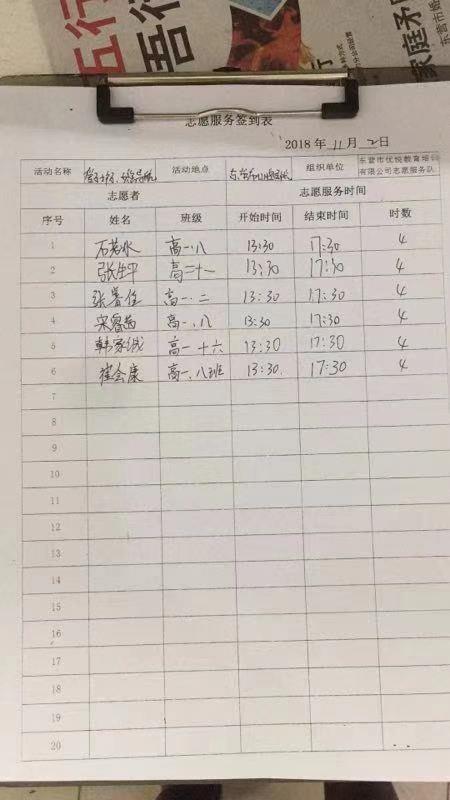 五行
吾行
家庭矛盾
东营市婚
志愿服务签到表
2018 年 11 月 2 日
活动名称 活动地点 组织单位 东营市优悦教育培训有限公司志愿服务队
志愿者 志愿服务时间
序号 姓名 班级 开始时间 结束时间 时数
1 石若水 高一.八 13:30 17:30 4
2 张生平 高二十一 13:30 17:30 4
3 张馨佳 高一.二 13:30 17:30 4
4 宋睿茜 高一.八 13:30 17:30 4
5 韩家诚 高一十六 13:30 17:30 4
6 崔会康 高一.八班 13:30. 17:30 4
7
8
9
10
11
12
13
14
15
16
17
18
19
20